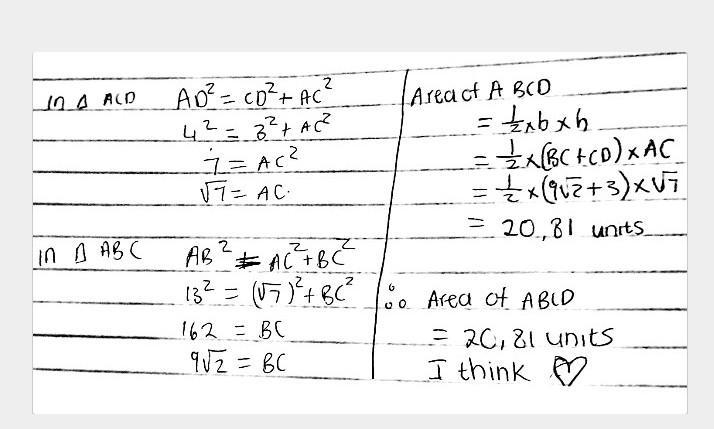 In Δ ACD AD² = CD² + AC²
4² = 3² + AC²
7 = AC²
√7 = AC.
In Δ ABC AB² = AC² + BC²
13² = (√7)² + BC²
162 = BC
9√2 = BC
Area of A BCD
= ½ x b x h
= ½ x (BC + CD) x AC
= ½ x (9√2 + 3) x √7
= 20,81 units
∴ Area of ABCD
= 20,81 units
I think ♡